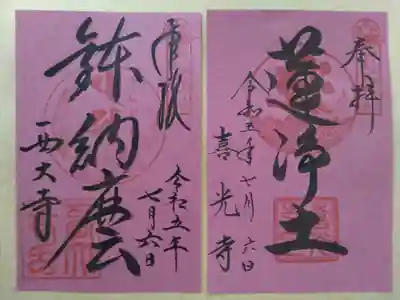 奉拝
蓮浄土
令和五年七月六日
喜光寺
令和五年
七月六日
鉢納麼
西大寺